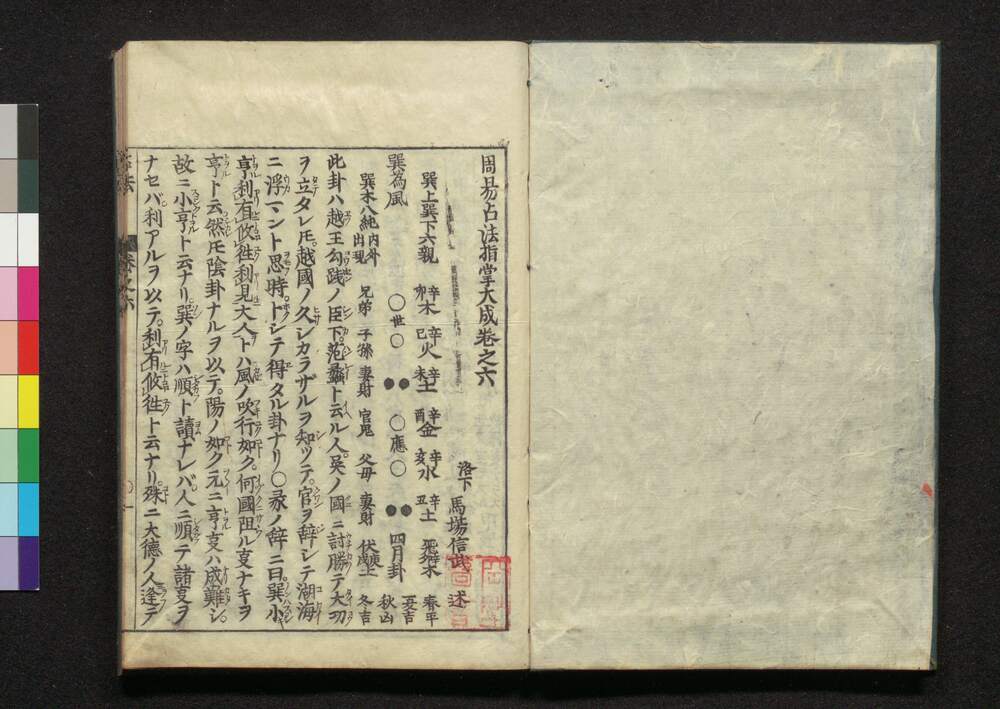 周易占法指掌大成卷之六
洛下 馬場信武 述
巽上巽下六親 辛卯木 辛巳火 辛未土 辛酉金 辛亥水 辛丑土 飛辛卯木 春平 夏吉
巽為風 ○世○ ●● ○應○ ●● 四月卦 秋凶
巽木八純内外出現 兄弟 子孫 妻財 官鬼 父母 妻財 伏庚戌土 冬吉
此卦ハ越王勾踐ノ臣下范蠡ト云ル人呉ノ國ニ討勝テ大功
ヲ立タレ𪜈越國ノ久シカラザルヲ知ツテ官ヲ辞シテ湖海
ニ浮マント思時トシテ得タル卦ナリ○彖ノ辞ニ曰巽小
亨利有攸徃利見大人トハ風ノ吹行如ク何國阻ル叓ナキヲ
亨ト云然𪜈陰卦ナルヲ以テ陽ノ如ク元ニ亨叓ハ成難シ
故ニ小亨ト云ナリ巽ノ字ハ順ト讀ナレバ人ニ順テ諸叓ヲ
ナセバ利アルヲ以テ利有攸徃ト云ナリ殊ニ大徳ノ人逢テ
卷之六